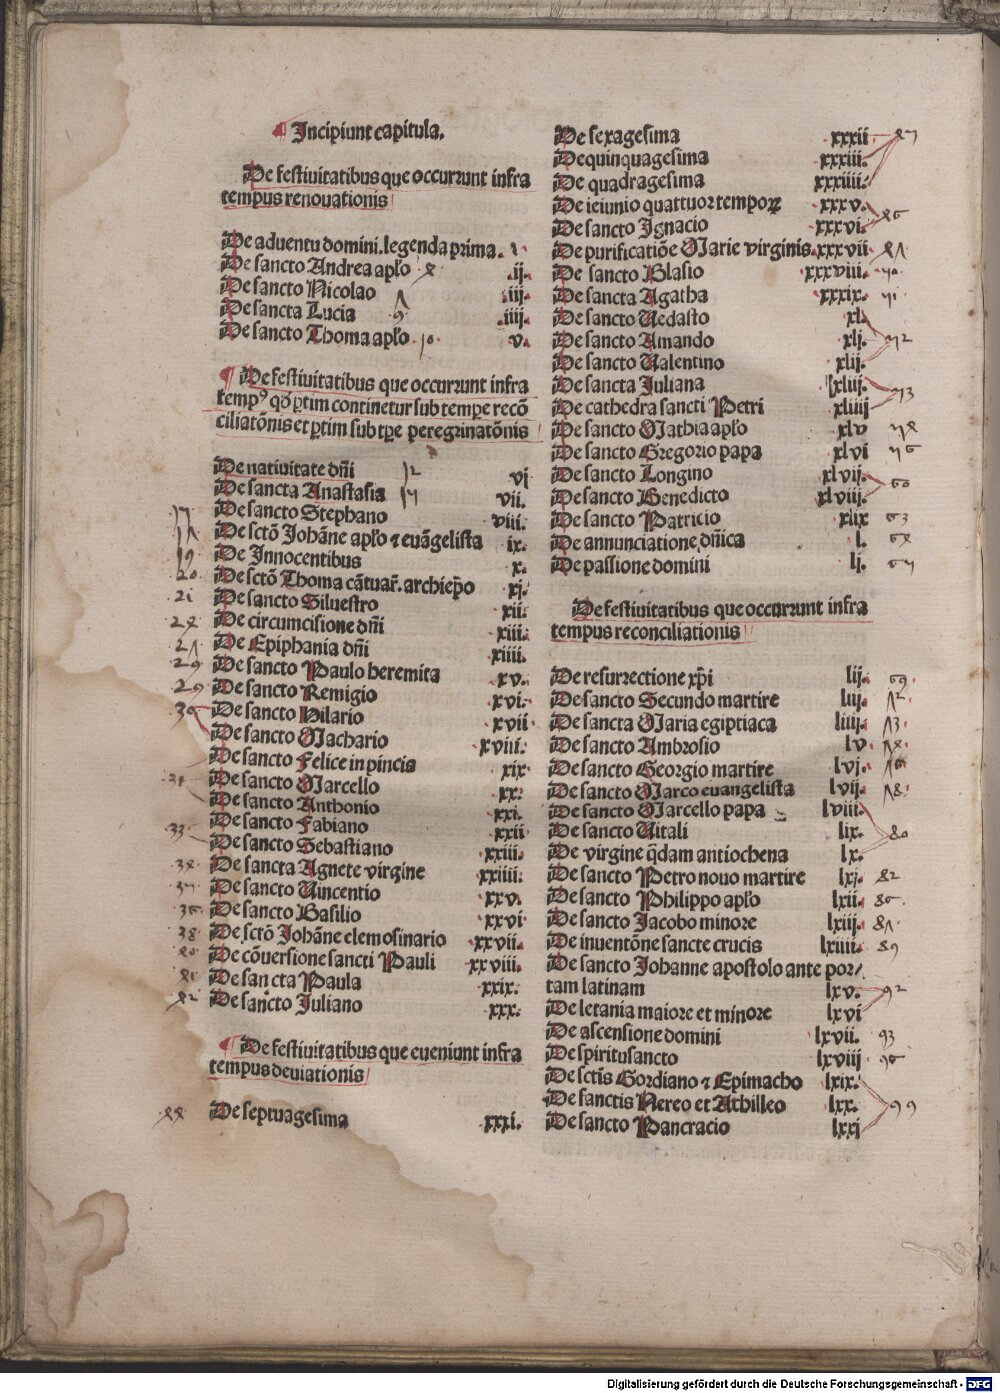 Incipiunt capitula.
De festiuitatibus que occurrunt infra
tempus renouationis
De aduentu domini. legenda prima. i
De sancto Andrea apło .ij.
De sancto Nicolao .iij.
De sancta Lucia .iiij.
De sancto Thoma apło .v.
De festiuitatibus que occurrunt infra
tempꝰ qđ ꝑtim continetur sub tempe recō
ciliatōnis et ꝑtim sub tpe peregrinatōnis
De natiuitate dñi vj
De sancta Anastasia vij.
De sancto Stephano viij.
De sctō Johāne apło ⁊ euāgelista ix.
De Innocentibus x.
De sctō Thoma cātuar̄. archiep̄o xj.
De sancto Siluestro xij.
De circumcisione dñi xiij.
De Epiphania dñi xiiij.
De sancto Paulo heremita xv.
De sancto Remigio xvi.
De sancto Hilario xvij
De sancto Machario xviij.
De sancto Felice in pincis xix
De sancto Marcello xx.
De sancto Anthonio xxi.
De sancto Fabiano xxij
De sancto Sebastiano xxiij.
De sancta Agnete virgine xxiiij.
De sancto Uincentio xxv.
De sancto Basilio xxvi
De sctō Johāne elemosinario xxvij.
De cōuersione sancti Pauli xxviij.
De sancta Paula xxix.
De sancto Juliano xxx.
De festiuitatibus que eueniunt infra
tempus deuiationis
De septuagesima xxxi.
De sexagesima xxxij
De quinquagesima xxxiij.
De quadragesima xxxiiij.
De ieiunio quattuor temporꝝ xxxv.
De sancto Ignacio xxxvi.
De purificatiōe Marie virginis. xxxvij
De sancto Blasio xxxviij.
De sancta Agatha xxxix.
De sancto Uedasto xl.
De sancto Amando xlj.
De sancto Ualentino xlij.
De sancta Juliana xliij.
De cathedra sancti Petri xliiij
De sancto Mathia apło xlv
De sancto Gregorio papa xlvi
De sancto Longino xlvij.
De sancto Benedicto xlviij.
De sancto Patricio xlix
De annunciatione dñica l.
De passione domini lj.
De festiuitatibus que occurrunt infra
tempus reconciliationis
De resurrectione xp̄i lij.
De sancto Secundo martire liij.
De sancta Maria egiptiaca liiij.
De sancto Ambrosio lv
De sancto Georgio martire lvj.
De sancto Marco euangelista lvij.
De sancto Marcello papa lviij.
De sancto Uitali lix.
De virgine q̄dam antiochena lx.
De sancto Petro nouo martire lxj.
De sancto Philippo apło lxij.
De sancto Jacobo minore lxiij.
De inuentōne sancte crucis lxiiij.
De sancto Johanne apostolo ante por/
tam latinam lxv.
De letania maiore et minore lxvi
De ascensione domini lxvij.
De spiritusancto lxviij
De sctīs Gordiano ⁊ Epimacho lxix.
De sanctis Nereo et Achilleo lxx.
De sancto Pancracio lxxj
Digitalisierung gefördert durch die Deutsche Forschungsgemeinschaft - DFG